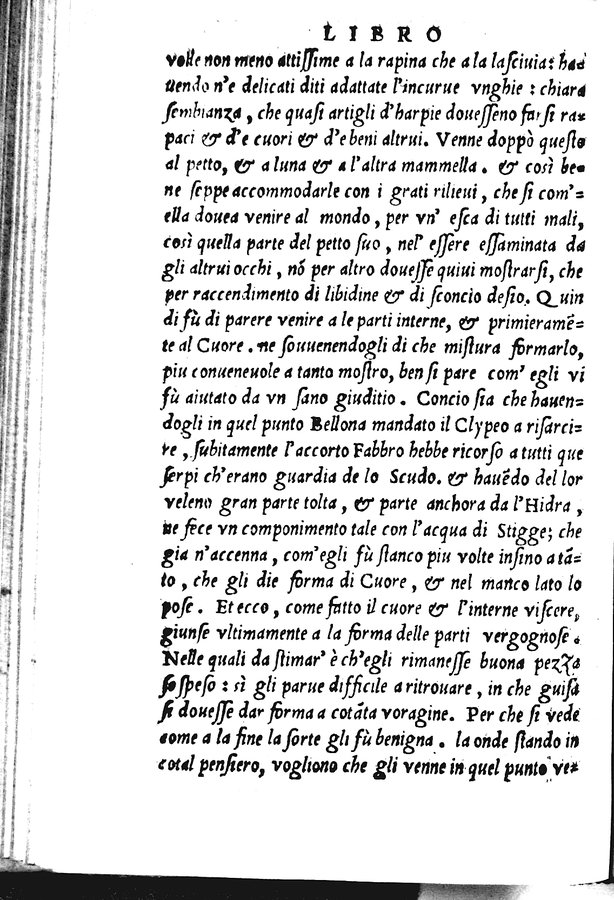 LIBRO
volle non meno attiſſime a la rapina che a la laſciuia: hau
uendo n'e delicati diti adattate l'incurue vnghie : chiara
ſembianza, che quaſi artigli d'harpie doueſſeno farſi ra-
paci & d'e cuori & d'e beni altrui. Venne doppò queſto
al petto, & a luna & a l'altra mammella. & così be-
ne ſeppe accommodarle con i grati rilieui, che ſi com'=
ella douea venire al mondo, per vn' eſca di tutti mali,
così quella parte del petto ſuo, nel' eſſere eſſaminata da
gli altrui occhi, nõ per altro doueſſe quiui moſtrarſi, che
per raccendimento di libidine & di ſconcio deſio. Quin
di fù di parere venire a le parti interne, & primieramẽ=
te al Cuore. ne ſouuenendogli di che miſtura formarlo,
piu conueneuole a tanto moſtro, ben ſi pare com' egli vi
fù aiutato da vn ſano giuditio. Concio ſia che hauen=
dogli in quel punto Bellona mandato il Clypeo a riſarci=
re, ſubitamente l'accorto Fabbro hebbe ricorſo a tutti que
ſerpi ch'erano guardia de lo Scudo. & hauẽdo del lor
veleno gran parte tolta, & parte anchora da l'Hidra,
ne fece vn componimento tale con l'acqua di Stigge; che
gia n'accenna, com'egli fù ſtanco piu volte inſino a tã=
to, che gli die forma di Cuore, & nel manco lato lo
poſe. Et ecco, come fatto il cuore & l'interne viſcere,
giunſe vltimamente a la forma delle parti vergognoſe.
Nelle quali da ſtimar' è ch'egli rimaneſſe buona pezza
ſoſpeſo : sì gli parue difficile a ritrouare, in che guiſa
ſi doueſſe dar forma a cotãta voragine. Per che ſi vede
come a la fine la ſorte gli fù benigna. la onde ſtando in
cotal penſiero, vogliono che gli venne in quel punto ve-